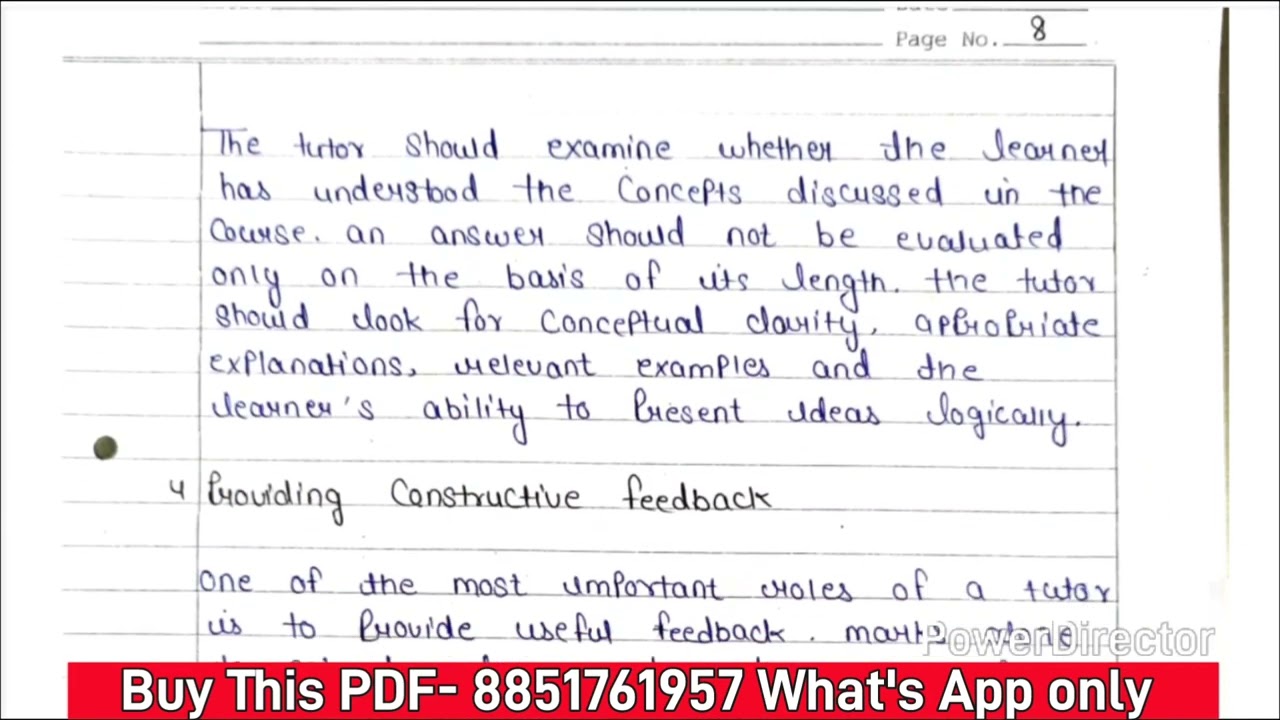 Page No. 8
The tutor should examine whether the learner
has understood the concepts discussed in the
course. an answer should not be evaluated
only on the basis of its length. the tutor
should look for conceptual clarity, appropriate
explanations, relevant examples and the
learner's ability to present ideas logically.
4 Providing Constructive feedback
one of the most important roles of a tutor
is to provide useful feedback. marks alone
PowerDirector
Buy This PDF- 8851761957 What's App only